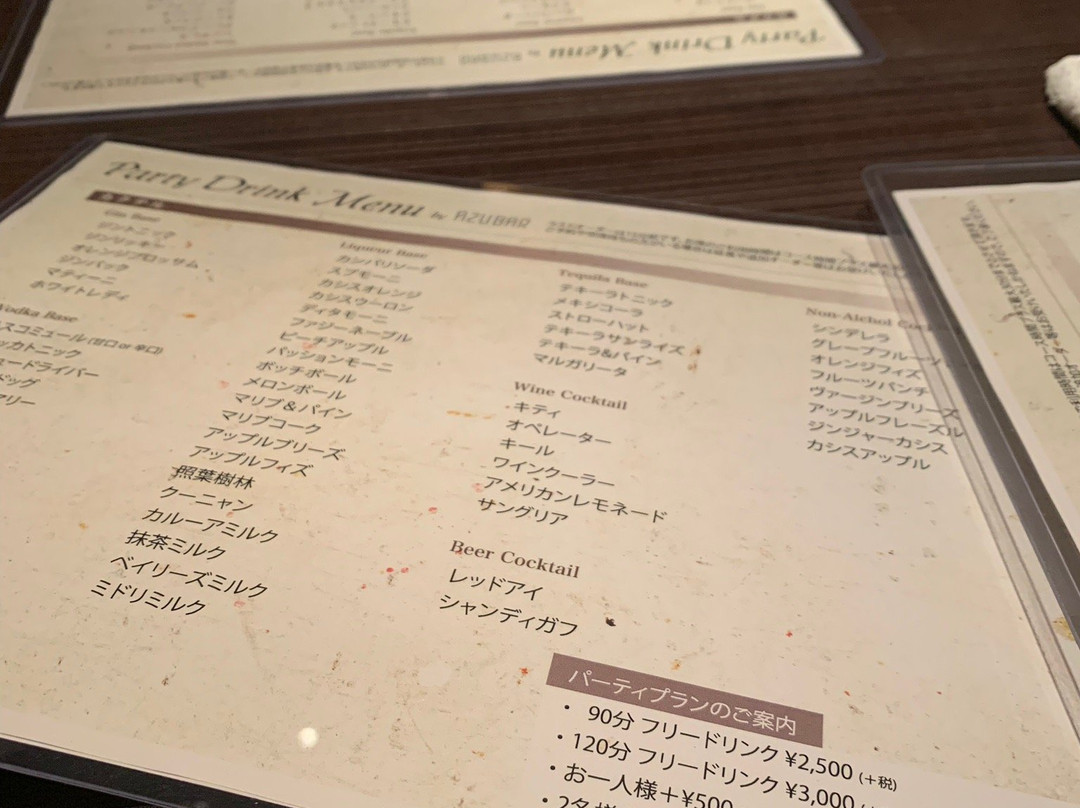 Party Drink Menu by AZUBAR
カクテル
Gin Base
ジントニック
ジンリッキー
オレンジブロッサム
ジンバック
マティーニ
ホワイトレディ
Vodka Base
スコミュール(甘口or辛口)
ッカトニック
ュードライバー
ドッグ
アリー
Liqueur Base
カンパリソーダ
スプモーニ
カシスオレンジ
カシスウーロン
ディタモーニ
ファジーネーブル
ピーチアップル
パッションモーニ
ボッチボール
メロンボール
マリブ&パイン
マリブコーク
アップルブリーズ
アップルフィズ
照葉樹林
クーニャン
カルーアミルク
抹茶ミルク
ベイリーズミルク
ミドリミルク
Tequila Base
テキーラトニック
メキシコーラ
ストローハット
テキーラサンライズ
テキーラ&パイン
マルガリータ
Wine Cocktail
キティ
オペレーター
キール
ワインクーラー
アメリカンレモネード
サングリア
Beer Cocktail
レッドアイ
シャンディガフ
Non-Alchol Cock
シンデレラ
グレープフルーツ
オレンジフィズ
フルーツパンチ
ヴァージンブリーズ
アップルフレーズル
ジンジャーカシス
カシスアップル
パーティプランのご案内
・ 90分 フリードリンク ¥2,500 (+税)
・120分 フリードリンク ¥3,000
・お一人様+¥500
・2名様
Party Drink Menu by AZUBAR